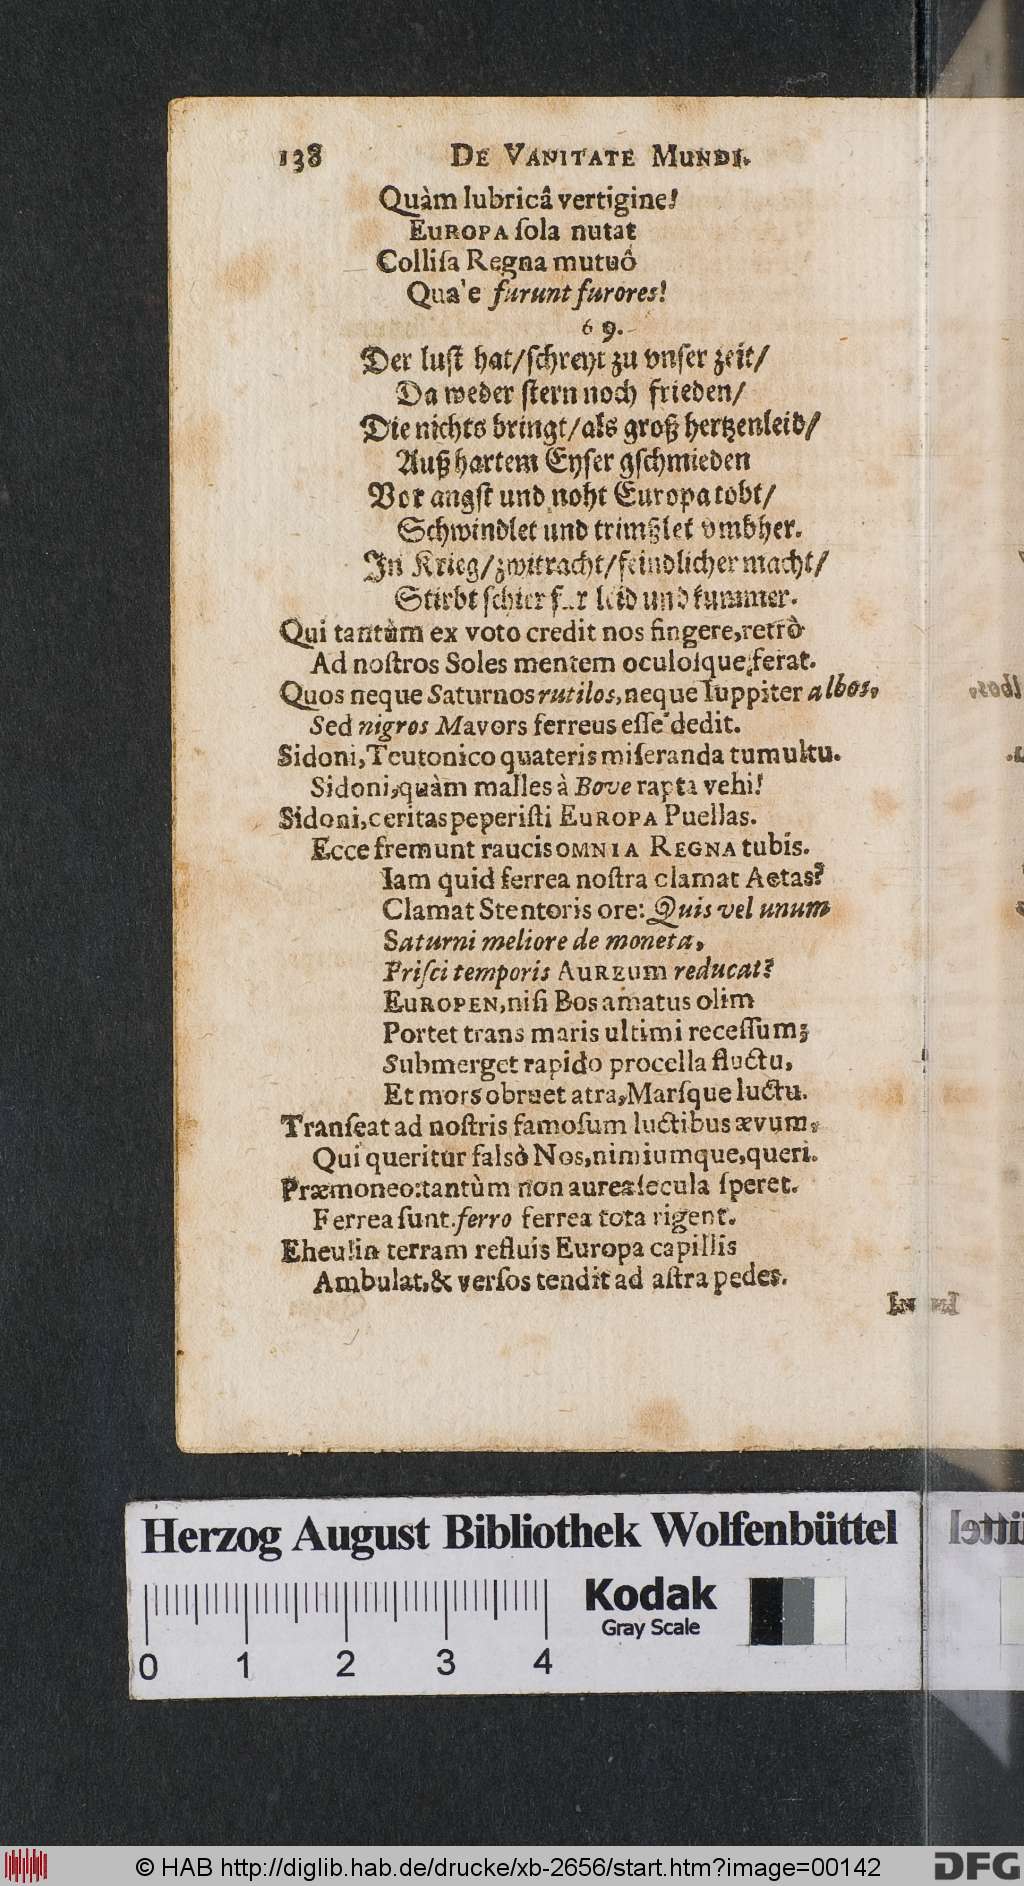 138 DE VANITATE MUNDI.
Quàm lubricâ vertigine!
EUROPA ſola nutat
Colliſa Regna mutuô
Qua'e furunt furores!
69.
Der luſt hat/ſchreyt zu vnſer zeit/
Da weder ſtern noch frieden/
Die nichts bringt/als groß hertzenleid/
Auß hartem Eyſer gſchmieden
Vor angſt und noht Europa tobt/
Schwindlet und trimßlet vmbher.
In Krieg/zwitracht/feindlicher macht/
Stirbt ſchier leid und kummer.
Qui tantùm ex voto credit nos fingere,retrò
Ad noſtros Soles mentem oculoſque ferat.
Quos neque Saturnos rutilos,neque Iuppiter albos,
Sed nigros Mavors ferreus eſſe dedit.
Sidoni,Teutonico quateris miſeranda tumultu.
Sidoni,quàm malles à Bove rapta vehi!
Sidoni,ceritas peperiſti EUROPA Puellas.
Ecce fremunt raucis OMNIA REGNA tubis.
Iam quid ferrea noſtra clamat Aetas?
Clamat Stentoris ore: Quis vel unum
Saturni meliore de moneta,
Priſci temporis AUREum reducat?
EUROPEN,niſi Bos amatus olim
Portet trans maris ultimi receſſum;
Submerget rapido procella fluctu,
Et mors obruet atra,Marſque luctu.
Tranſeat ad noſtris famoſum luctibus ævum,
Qui queritur falsò Nos,nimiumque,queri.
Præmoneo:tantùm non aurea ſecula ſperet.
Ferrea ſunt.ferro ferrea tota rigent.
Eheu!in terram refluis Europa capillis
Ambulat,& verſos tendit ad aſtra pedes.
Herzog August Bibliothek Wolfenbüttel
Kodak
Gray Scale
0 1 2 3 4
© HAB http://diglib.hab.de/drucke/xb-2656/start.htm?image=00142
DFG